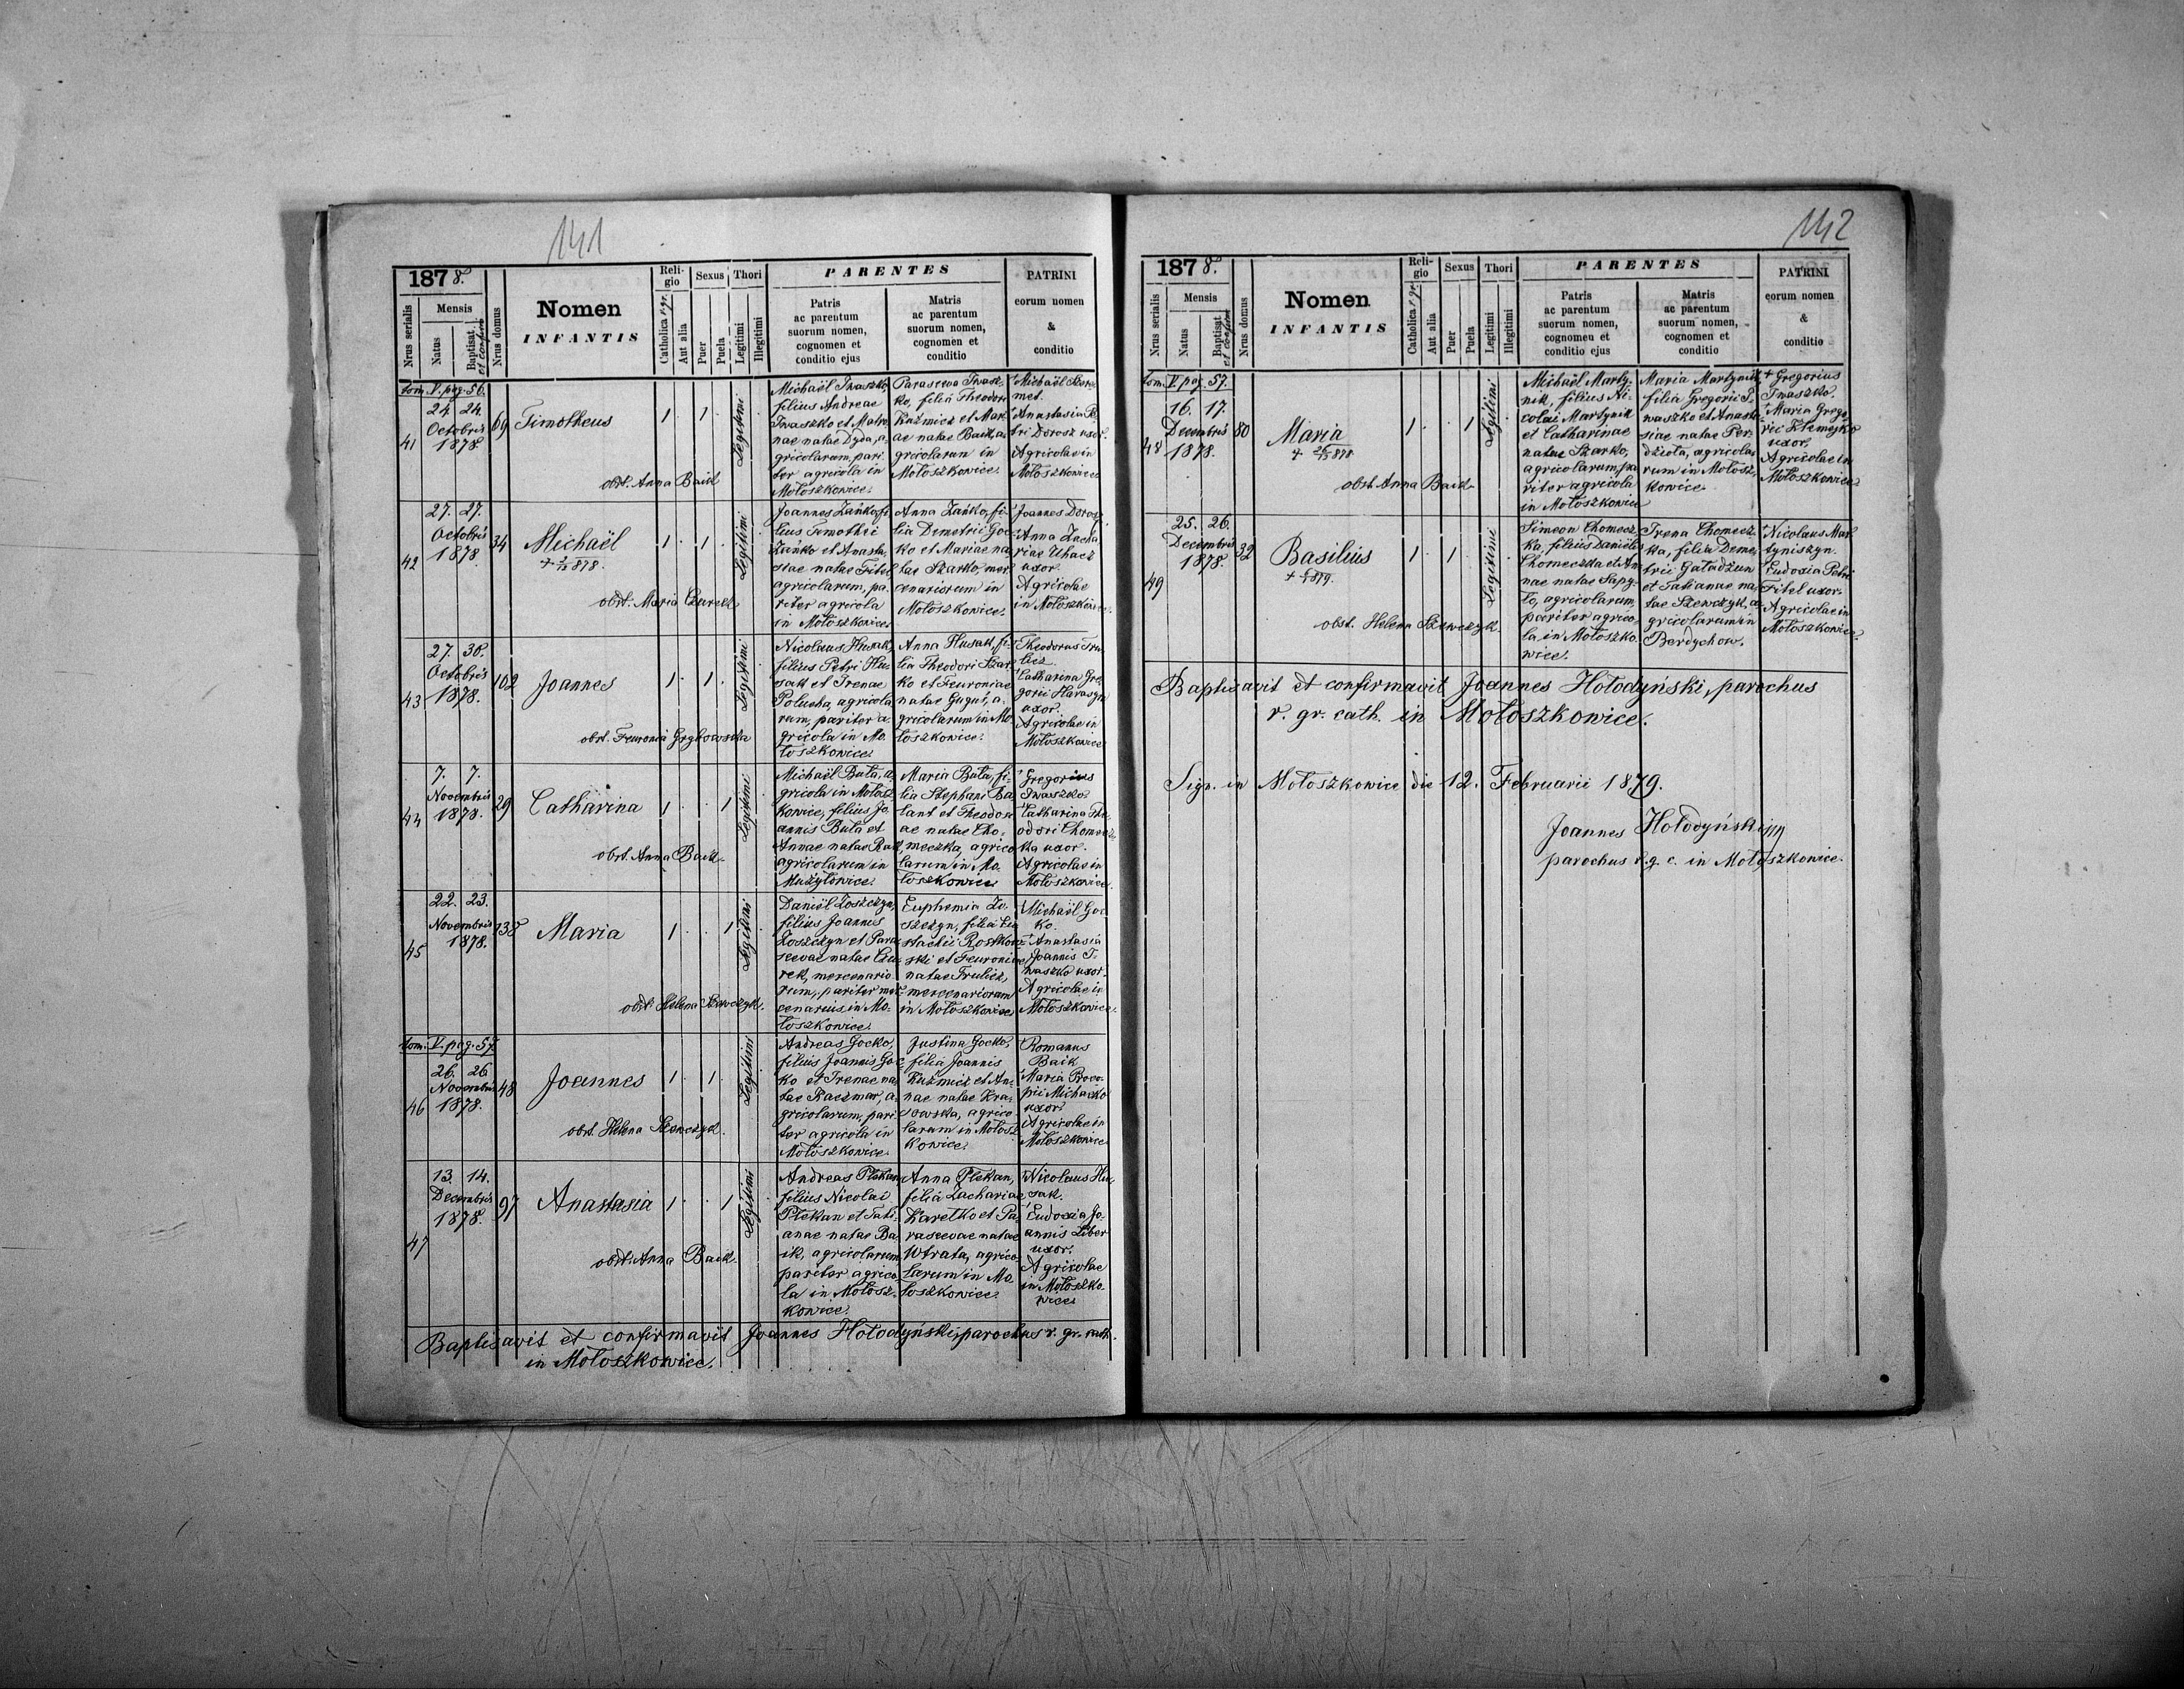 141
1878.
Nrus serialis
Mensis
Natus
Baptisat. et confirm.
Nrus domus
Nomen
INFANTIS
Religio
Catholica r. gr.
Aut alia
Sexus
Puer
Puela
Thori
Legitimi
Illegitimi
PARENTES
Patris
ac parentum
suorum nomen,
cognomen et
conditio ejus
Matris
ac parentum
suorum nomen,
cognomen et
conditio
PATRINI
eorum nomen
&
conditio
tom. V. pag. 56.
41
24. 24.
Octobris
1878
69
Timotheus
1 . 1 .
Legitimi
obst. Anna Baik
Michaël Iwaszko,
filius Andreae
Iwaszko et Matro-
nae natae Dyda, a-
gricolarum, pari-
ter agricola in
Mołoszkowice.
Parascewa Iwasz-
ko, filia Theodori
Kuźmicz et Mari-
ae natae Baik, a-
gricolarum in
Mołoszkowice.
Anastasia Pe-
tri Dorosz uxor.
Agricolae in
Mołoszkowice
42
27. 27.
Octobris
1878.
34
Michaël
1 . 1 .
Legitimi
obst. Maria Czurek
Joannes Zańko, fi-
lius Timothei
Zańko et Anasta-
siae natae Fitel
agricolarum, pa-
riter agricola
in Mołoszkowice
Anna Zańko, fi-
lia Demetrii Goc-
ko et Mariae na-
tae Szarko, mer-
cenariorum in
Mołoszkowice.
Joannes Dorosz
Anna Zacha-
riae Uhacz
uxor.
Agricolae
in Mołoszkowice.
43
27. 30.
Octobris
1878.
102
Joannes
1 . 1 .
Legitimi
obst. Feuronia Grybowska
Nicolaus Husak,
filius Petri Hu-
sak et Irenae
Polucha, agricola-
rum, pariter a-
gricola in Mo-
łoszkowice.
Anna Husak, fi-
lia Theodori Szar-
ko et Feuroniae
natae Guguś, a-
gricolarum in Mo-
łoszkowice.
Theodorus Tru-
licz
Catharina Gre-
gorii Harasym
uxor.
Agricolae in
Mołoszkowice
44
7. 7.
Novembris
1878.
29
Catharina
1 . . 1
Legitimi
obst. Anna Baik.
Michaël Buta, a-
gricola in Mołosz-
kowice, filius Jo-
annis Buta et
Annae natae Rak,
agricolarum in
Mużyłowice.
Maria Buta, fi-
lia Stephani Ba-
lant et Theodosi-
ae natae Cho-
meczka, agrico-
larum in Mo-
łoszkowice
Gregorius
Iwaszko
Catharina The-
odori Chomecz-
ka uxor.
Agricolae in
Mołoszkowice.
45
22. 23.
Novembris
1878.
138
Maria
1 . . 1
Legitimi
obst. Helena Szewczyk.
Daniël Łoszczyn,
filius Joannis
Łoszczyn et Para-
scevae natae Czu-
rek, mercenario-
rum, pariter mer-
cenarius in Mo-
łoszkowice.
Euphemia Ło-
szczyn, filia Eu-
stachii Rostkow-
ski et Feuroniae
natae Trulicz,
mercenariorum
in Mołoszkowice
Michaël Goc-
ko.
Anastasia
Joannis I-
waszko uxor.
Agricolae in
Mołoszkowice.
tom. V. pag. 57
46
26. 26
Novembris
1878.
48
Joannes
1 . 1 .
Legitimi
obst. Helena Szewczyk.
Andreas Gocko,
filius Joannis Goc-
ko et Irenae na-
tae Kaczmar, a-
gricolarum, pari-
ter agricola in
Mołoszkowice.
Justina Gocko,
filia Joannis
Kuźmicz et An-
nae natae Kra-
sowska, agrico-
larum in Mołosz-
kowice.
Romanus
Baik
Maria Proco-
pii Michaszko
uxor.
Agricolae in
Mołoszkowice
47
13. 14.
Decembris
1878.
97
Anastasia
1 . . 1
Legitimi
obst. Anna Baik.
Andreas Plekan,
filius Nicolai
Plekan et Tati-
anae natae Ba-
ik, agricolarum
pariter agrico-
la in Mołosz-
kowice.
Anna Plekan,
filia Zachariae
Karetko et Pa-
rascevae natae
Wtrata, agrico-
larum in Mo-
łoszkowice.
Nicolaus Hu-
sak.
Eudoxia Jo-
annis Liber
uxor.
Agricolae
in Mołoszko-
wice
Baptisavit et confirmavit Joannes Hołodyński, parochus r. gr. cath.
in Mołoszkowice.
142
1878.
Nrus serialis
Mensis
Natus
Baptisat. et confirm
Nrus domus
Nomen
INFANTIS
Religio
Catholica r. gr.
Aut alia
Sexus
Puer
Puela
Thori
Legitimi
Illegitimi
PARENTES
Patris
ac parentum
suorum nomen,
cognomen et
conditio ejus
Matris
ac parentum
suorum nomen,
cognomen et
conditio
PATRINI
eorum nomen
&
conditio
tom. V. pag. 57.
48
16. 17.
Decembris
1878.
80
Maria
1 . . 1
Legitimi
obst. Anna Baik
Michaël Marty-
nik, filius Ni-
colai Martynik
et Catharinae
natae Szarko,
agricolarum, pa-
riter agricola
in Mołoszkowice
Maria Martynik,
filia Gregorii I-
waszko et Anasta-
siae natae Per-
dzioła, agricola-
rum in Mołosz-
kowice.
+ Gregorius
Iwaszko.
Maria Grego-
rii Klemeyko
uxor.
Agricolae in
Mołoszkowice.
49
25. 26.
Decembris
1878.
32
Basilius
1 . 1 .
Legitimi
obst. Helena Szewczyk.
Simeon Chomecz-
ka, filius Danielis
Chomeczka et An-
nae natae Sapy-
ło, agricolarum,
pariter agrico-
la in Mołoszko-
wice.
Irena Chomecz-
ka, filia Deme-
trii Gaładzun
et Tatianae na-
tae Szewczyk, a-
gricolarum in
Berdychow.
Nicolaus Mar-
tyniszyn.
Eudoxia Petri
Fitel uxor.
Agricolae in
Mołoszkowice.
Baptisavit et confirmavit Joannes Hołodyński, parochus
r. gr. cath. in Mołoszkowice.
Sign. in Mołoszkowice die 12. Februarii 1879.
Joannes Hołodyński
parochus r. g. c. in Mołoszkowice.